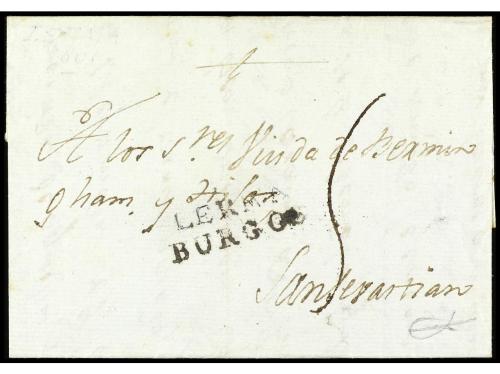 A los S.res Viuda de Bermin
gham. y Hijos
LERMA
BURGOS
San Sevastian